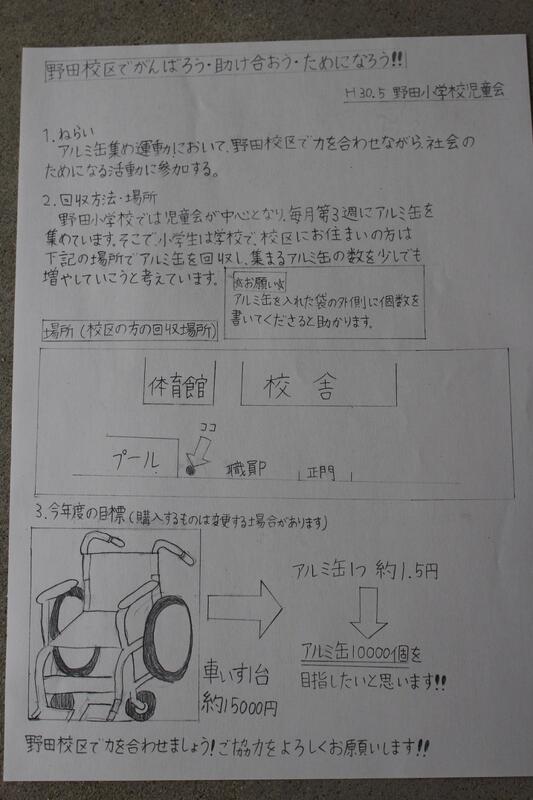 野田校区でがんばろう・助け合おう・ためになろう!!
H30.5 野田小学校児童会
1.ねらい
アルミ缶集め運動において、野田校区で力を合わせながら、社会の
ためになる活動に参加する。
2.回収方法・場所
野田小学校では児童会が中心となり、毎月第3週にアルミ缶を
集めています。そこで小学生は学校で、校区にお住まいの方は
下記の場所でアルミ缶を回収し、集まるアルミ缶の数を少しでも
増やしていこうと考えています。
☆お願い☆
アルミ缶を入れた袋の外側に個数を
書いてくださると助かります。
場所(校区の方の回収場所)
体育館
校舎
ココ
プール
職員P
正門
3.今年度の目標(購入するものは変更する場合があります)
アルミ缶1つ 約1.5円
アルミ缶10000個を
目指したいと思います!!
車いす1台
約15000円
野田校区で力を合わせましょう!ご協力をよろしくお願いします!!